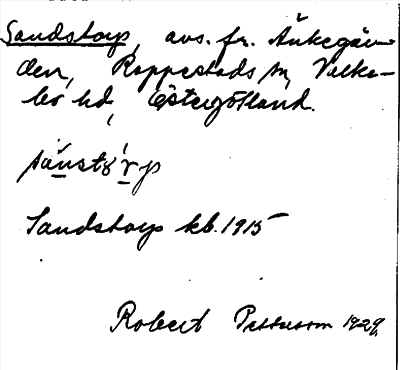 Sandstorp, avs. fr. Änkegår-
den, Rappestads sn, Vifka-
bo hd, Östergötland.
sänstôrp
Sandstorp kb. 1915
Robert Pettersson 1929.